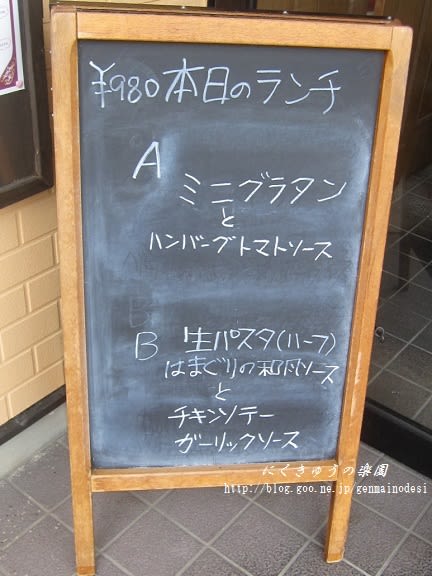 ¥980 本日のランチ
A
ミニグラタン
と
ハンバーグトマトソース
B 生パスタ(ハーフ)
はまぐりの和風ソース
と
チキンソテー
ガーリックソース
にくきゅうの楽園
http://blog.goo.ne.jp/genmainodesi